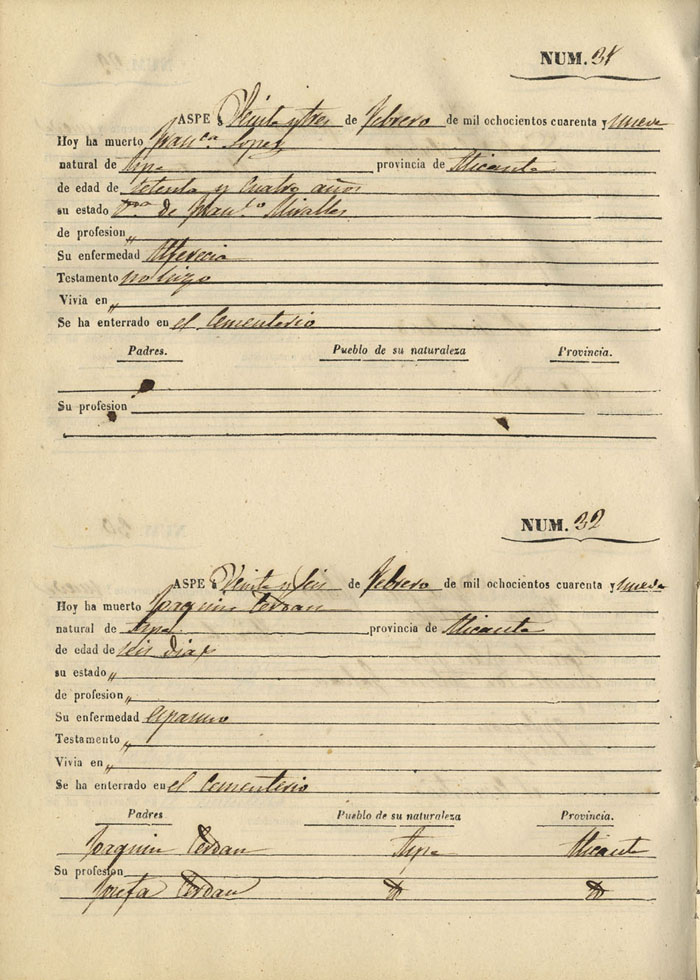 NUM. 31
ASPE a Veinte y tres de Febrero de mil ochocientos cuarenta y nueve
Hoy ha muerto Fran.ca Lopez
natural de Aspe provincia de Alicante
de edad de setenta y cuatro años
su estado V.da de Fran.co Miralles
de profesion „
Su enfermedad Alferecia
Testamento no hizo
Vivia en „
Se ha enterrado en el Cementerio
Padres. Pueblo de su naturaleza Provincia.
Su profesion
NUM. 32
ASPE a Veinte y seis de Febrero de mil ochocientos cuarenta y nueve
Hoy ha muerto Joaquin Cerdan
natural de Aspe provincia de Alicante
de edad de seis dias
su estado „
de profesion „
Su enfermedad espasmo
Testamento „
Vivia en „
Se ha enterrado en el Cementerio
Padres Pueblo de su naturaleza Provincia.
Joaquin Cerdan Aspe Alicante
Su profesion
Josefa Cerdan